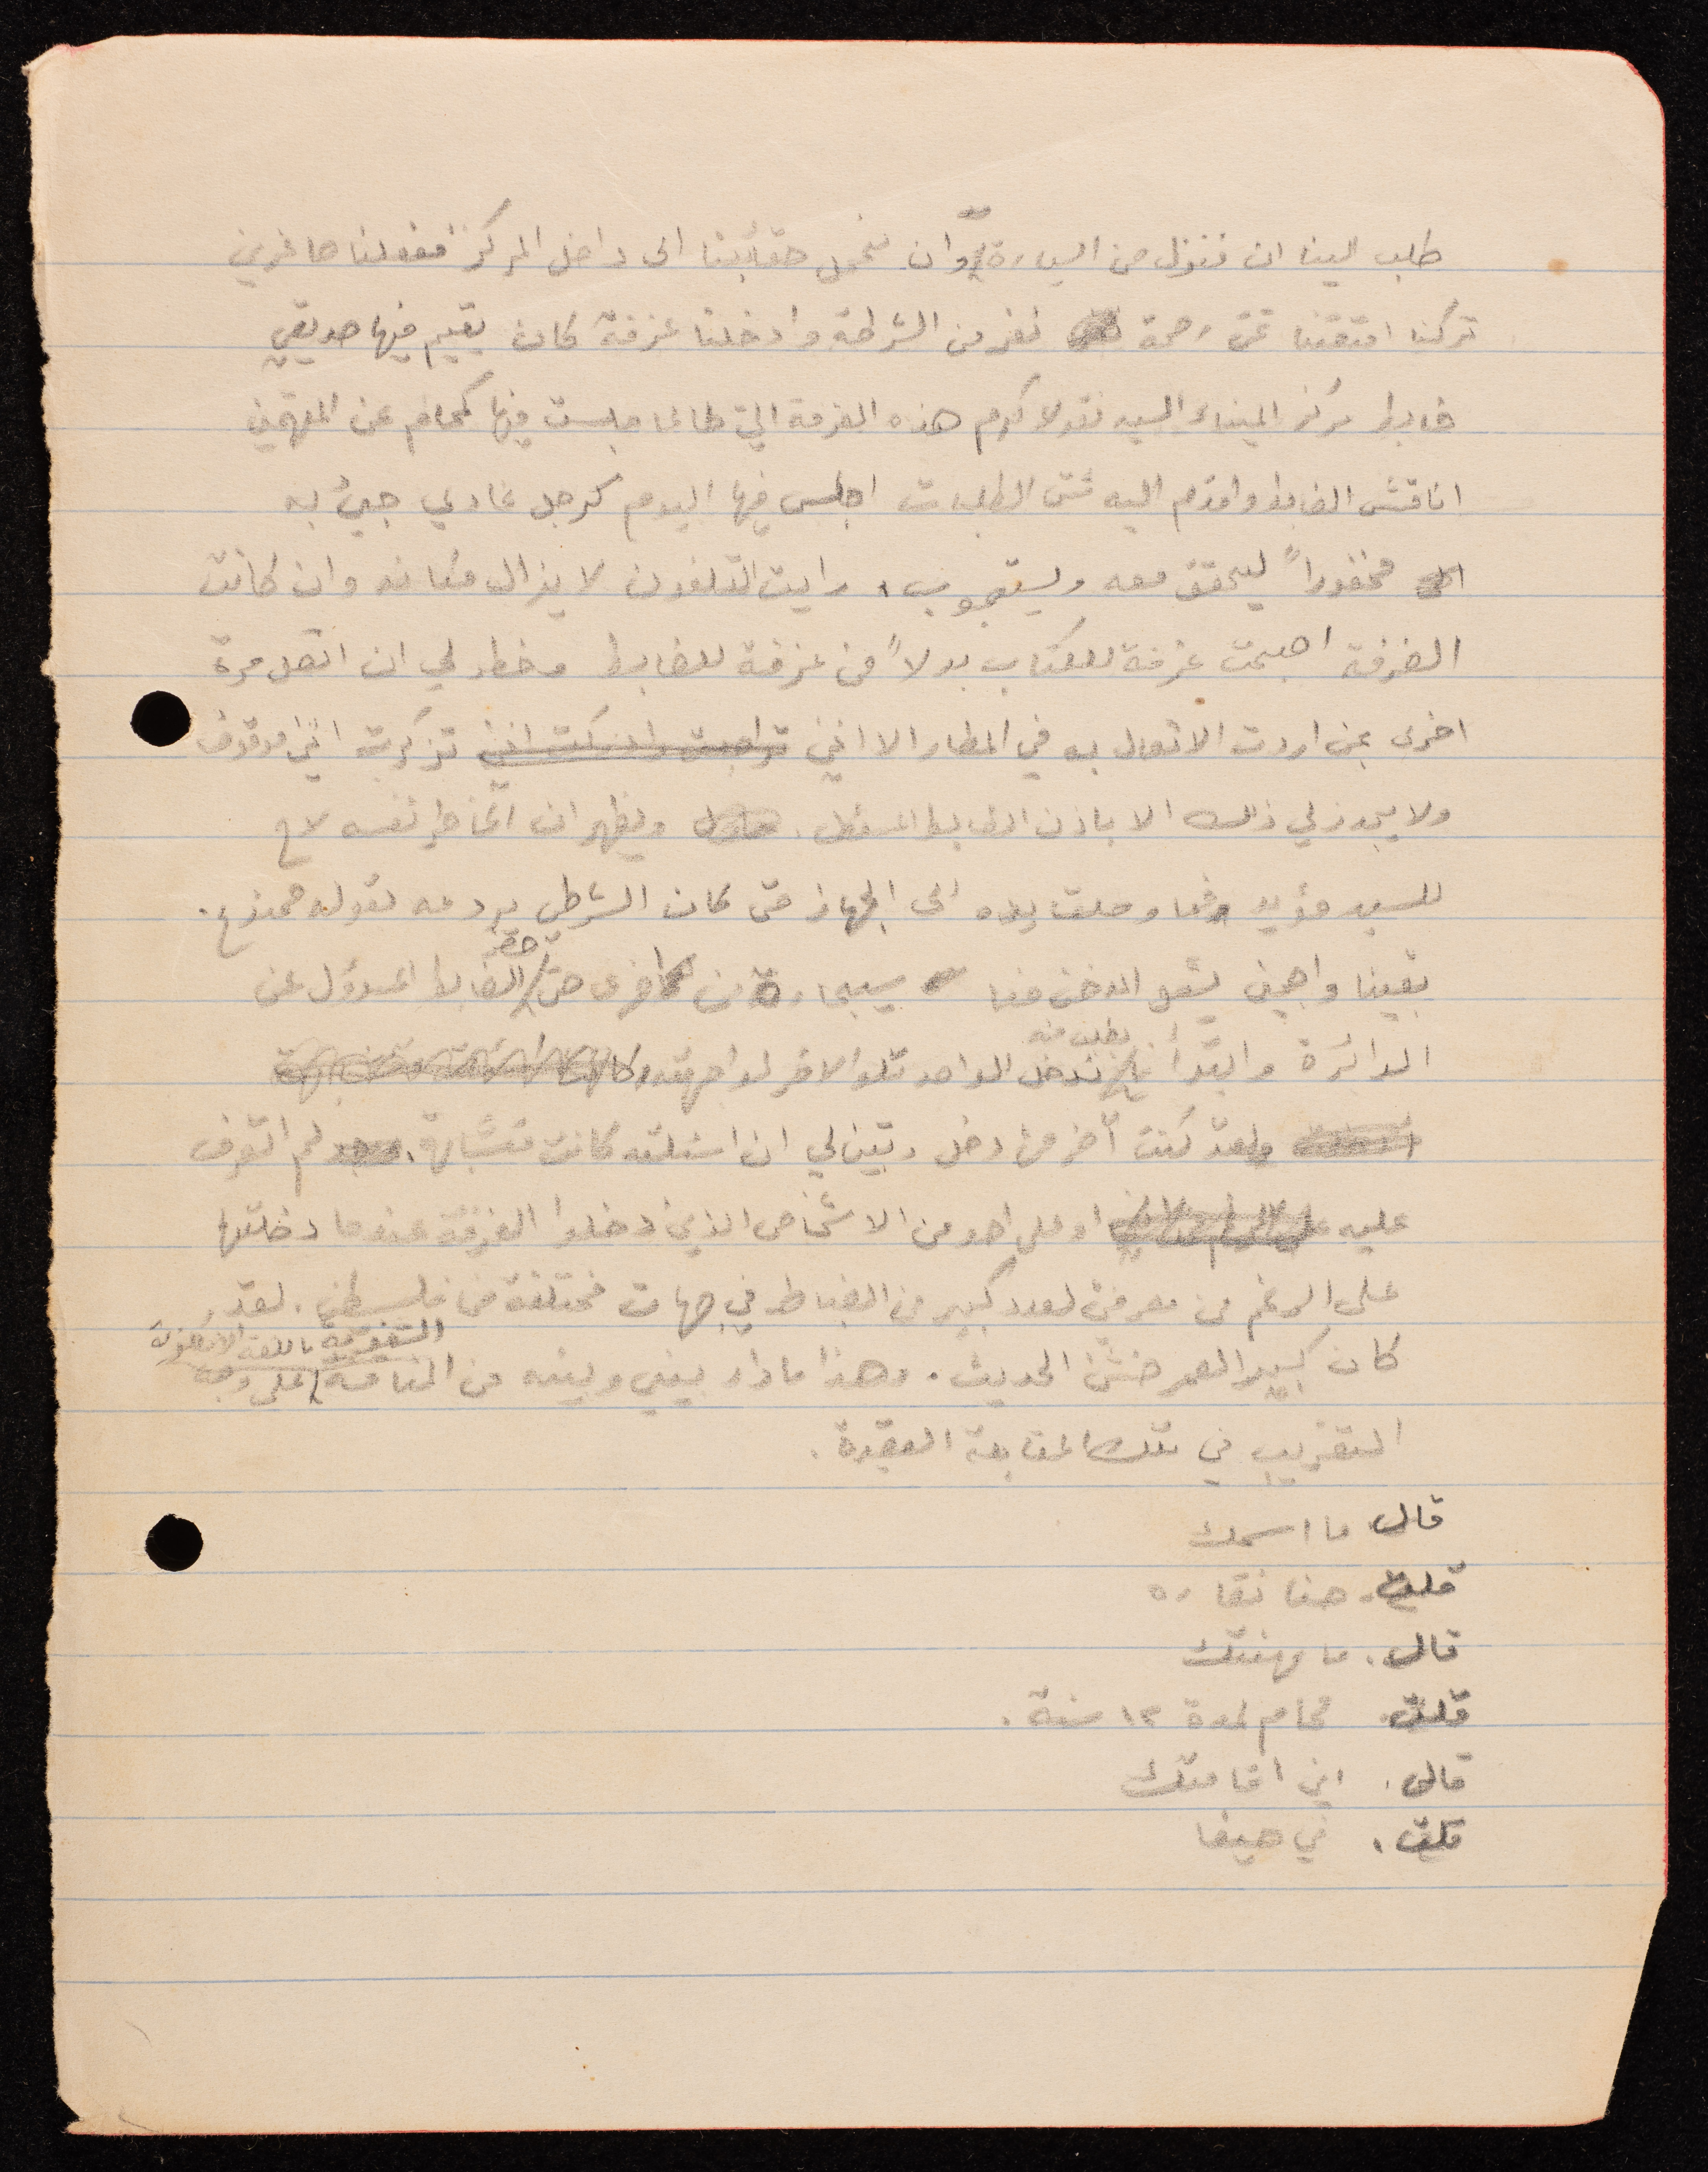 طلب الينا ان ننزل من السيارة وان نحمل حقائبنا الى داخل المركز ففعلنا صاغرين
تركنا امتعتنا تحت رحمة نفر من الشرطة وادخلنا غرفة كان يقيم فيها صديقي
ضابط مركز الميناء السيد نقولا كرم هذه الغرفة التي طالما جلست فيها كمحام عن المتهمين
اناقش الضابط واقدم اليه شتى الطلبات اجلس فيها اليوم كرجل عادي جيئ به
مخفوراً ليحقق معه ويستجوب، رايت التلفون لا يزال مكانه وان كانت
الغرفة اصبحت غرفة للكتاب بدلاً من غرفة للضابط وخطر لي ان اتصل مرة
اخرى بمن اردت الاتصال به في المطار الا انني تذكرت انني موقوف
ولا يجوز لي ذلك الا باذن الضابط المسئول. ويظهر ان الخاطر نفسه لاح
للسيد مؤيد فما وصلت يده الى الجهاز حتى كان الشرطي يردعه بقوله ممنوع.
بقينا واجمين يشعل المدخن منا سيجارة من اخرى حتى حضر الضابط المسؤول عن
الدائرة وابتدأ يطلب منه ندخل الواحد تلو الاخر لمواجهته
ولقد كنت آخر من دخل وتبين لي ان اسئلته كانت متشابهة. لم اتعرف
عليه او على احد من الاشخاص الذين دخلوا الغرفة عندما دخلتها
على الرغم من معرفتي لعدد كبير من الضباط في جهات مختلفة من فلسطين. لقد
كان كبير العمر خشن الحديث. وهذا ما دار بيني وبينه من المناقشة باللغة الانكليزية على وجه
التقريب في تلك المقابلة
قال ما اسمك
قلت. حنا نقاره
قال. ما مهنتك
قلت. محام لمدة ١٢ سنة.
قال. اين اقامتك
قلت. في حيفا